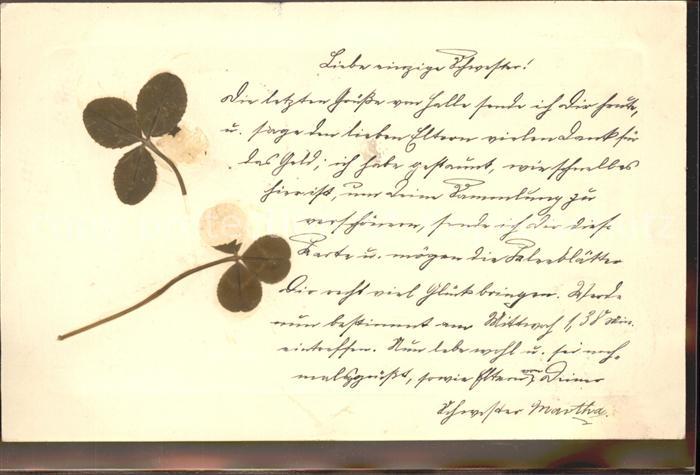 Liebe einzige Schwester!
Die letzten Grüße von Halle sende ich Dir heute,
u. sage den lieben Eltern vielen Dank für
das Geld; ich habe gestaunt, wie schnell es
hier ist, um Deine Sammlung zu
verschönern, sende ich Dir diese
Karte u. mögen die Kleeblätter
Dir recht viel Glück bringen. Werde
nun bestimmt am Mittwoch 1,38 Min.
eintreffen. Nun lebe wohl u. sei noch-
mals gegrüßt, sowie Eltern von Deiner
Schwester Martha.